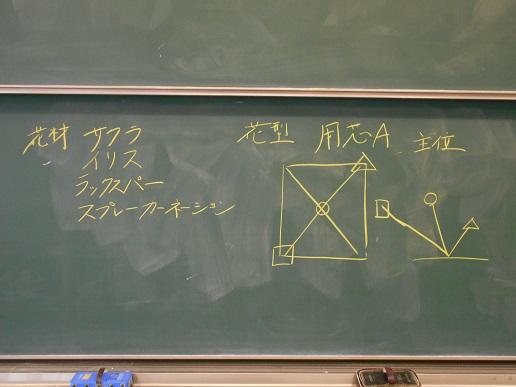 花材 サクラ
イリス
ラックスパー
スプレーカーネーション
花型 用芯A 主位